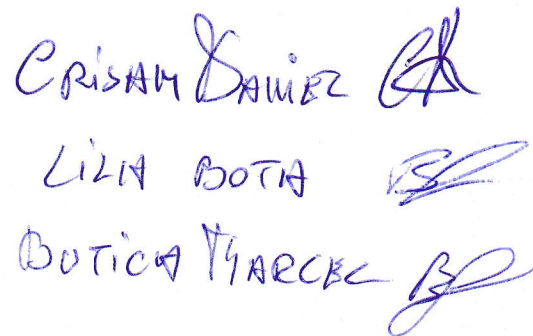 CRIȘAN DANIEL
LILIA BOTIA
BUTICA MARCEL